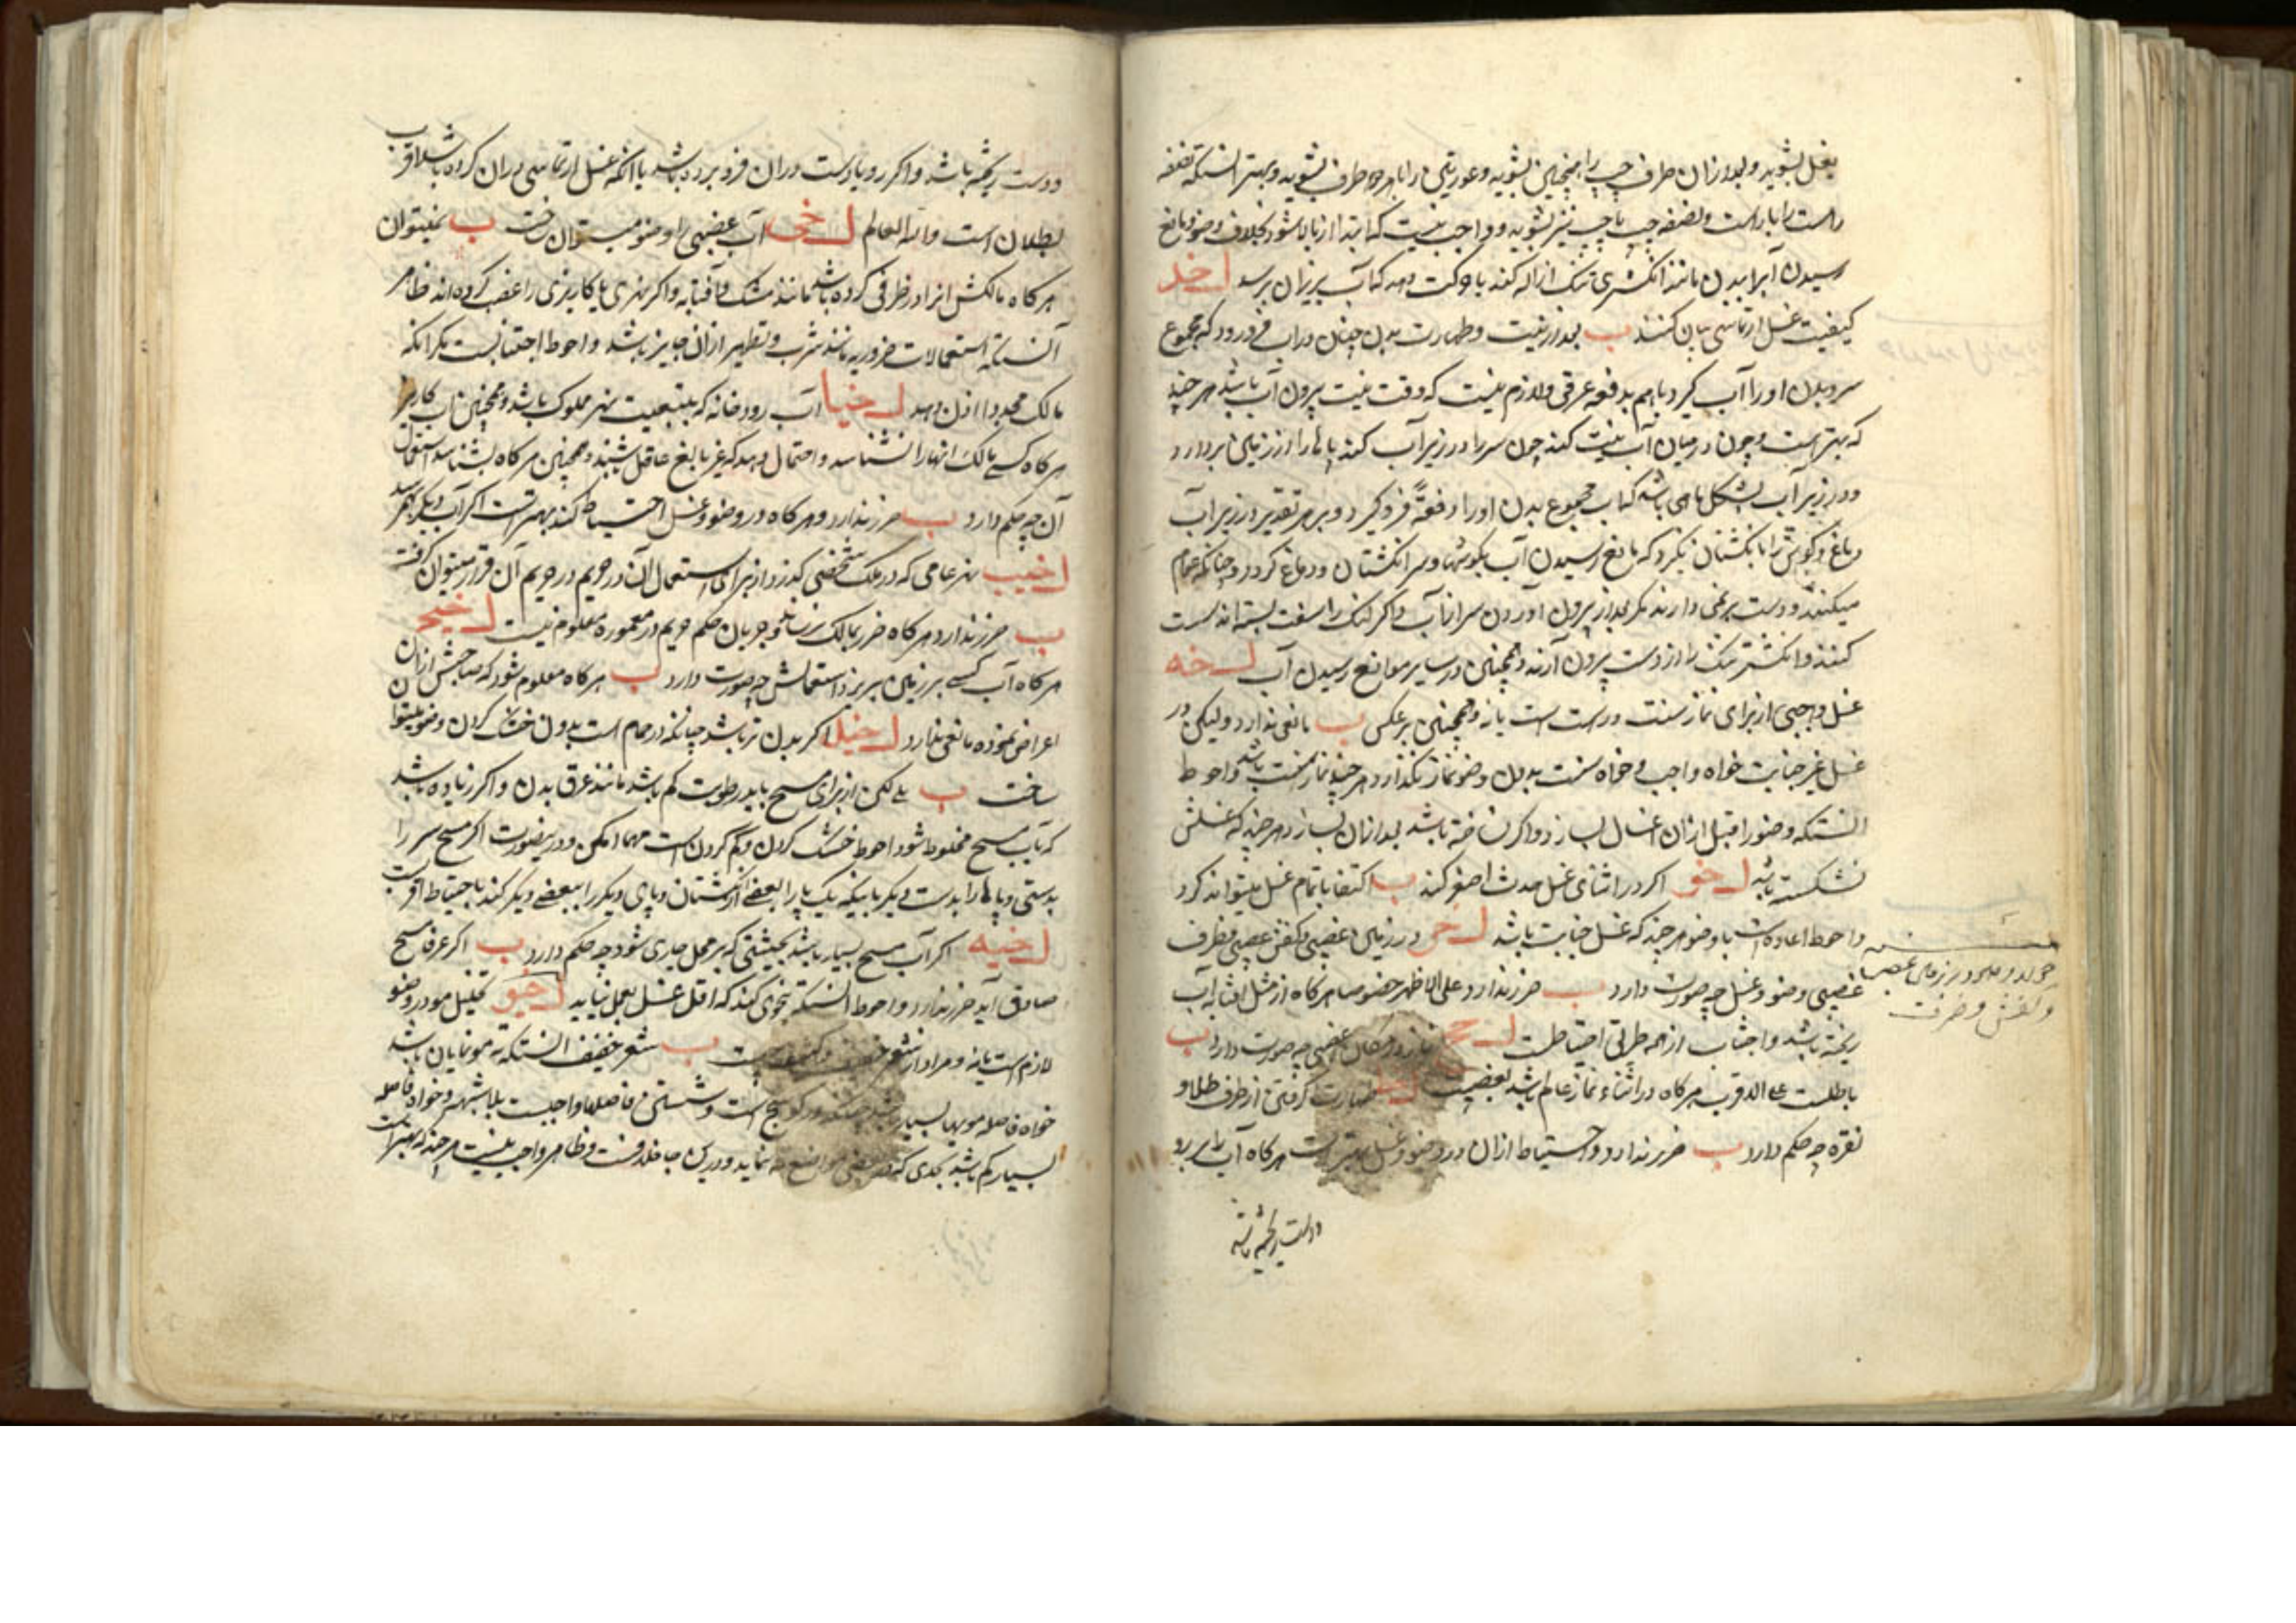 بغل بشوید و بعد از ان طرف چپ را همچنین بشوید و عورتین را با هر دو طرف بشوید و بهتر انستکه نصفه
راست را با راست و نصفه چپ با چپ نیز بشوید و واجب نیست که ابتدا از بالا شود بخلاف وضو و مانع
رسیدن آبرا ببدن مانند انکشتری تنک ازاله کند یا حرکت دهد که آب بزیر ان برسد ل خد
کیفیت غسل ارتماسی بیان کنند ب بعد از نیت و طهارت بدن چنان در اب فرو رود که مجموع
سر و بدن او را آب کیرد باهم بدفعه عرفی و لازم نیست که وقت نیت بیرون آب باشد هر چند
که بهتر است و چون در میان آب نیت کند چون سر را در زیر آب کند پاها را از زمین بردارد
و در زیر آب بشکل ماهی باشد که اب مجموع بدن او را دفعةً فرو کیرد و بر هر تقدیر در زیر آب
دماغ و کوش را بانکشتان نکیرد که مانع رسیدن آب بکوشها و سر انکشتان و دماغ کردد و چنانکه عوام
میکنند و دست بر نمی دارند مکر بعد از بیرون اوردن سر از آب و اکر لنک را سفت بسته اند سست
کنند و انکشتر تنک را از دست بیرون آرند و همچنین در سایر موانع رسیدن آب ل خه
غسل واجبی از برای نماز سنت درست است یا نه و همچنین بر عکس ب مانعی ندارد ولیکن در
غسل غیر جنابت خواه واجب و خواه سنت بدون وضو نماز نکذارد هر چند نماز سنت باشد و احوط
انستکه وضو را قبل از ان اغسال بسازد و اکر نساخته باشد بعد از ان بسازد هر چند که غسلش
نشکسته باشد ل خو اکر در اثنای غسل حدث اصغر کند ب اکتفا باتمام غسل میتواند کرد
و احوط اعاده است با وضو هر چند که غسل جنابت باشد ل خز در زمین غصبی و کفش غصبی و ظرف
غصبی وضو و غسل چه صورت دارد ب ضرر ندارد علی الاظهر خصوصا هرکاه از مثل افتابه آب
ریخته باشد و اجتناب از همه طریق احتیاطست ل خح نماز در مکان غصبی چه صورت دارد ب
باطلست علی الاقرب هرکاه در اثناء نماز عالم باشد بغصبیت ل خط طهارت کرفتن از ظرف طلا و
نقره چه حکم دارد ب ضرر ندارد و احتیاط از ان در وضو و غسل بهتر است هرکاه آب را بر رو
و دست ریخته باشد
در زمان غصبی
و کفش و ظرف
و دست ریخته باشد و اکر رو یا دست در ان فرو برده باشد یا انکه غسل ارتماسی در ان کرده باشد اقرب
بطلان است والله العالم ل خی آب غصبی را وضو میتوان ساخت ب نمیتوان
هرکاه مالکش انرا در ظرفی کرده باشد مانند مشک و آفتابه و اکر نهری یا کاریزی را غصب کرده اند ظاهر
آنستکه استعمالات ضروریه مانند شرب و تطهیر از ان جایز باشد و احوط اجتنابست مکر انکه
مالک مجددا اذن دهد ل خیا آب رودخانه که بتبعیت نهر مملوک باشد و همچنین اب کاریز
هرکاه کسی مالک انها را نشناسد و احتمال دهد که غیر بالغ عاقل باشند و همچنین هرکاه بشناسد استعمال
آن چه حکم دارد ب ضرر ندارد و هرکاه در وضو و غسل احتیاط کند بهتر است اکر آب دیکر بهم رسد
ل خیب نهر عامی که در ملک شخصی کذرد از برای استعمال آن در حریم در حریم آن قرار میتوان کرفت
ب ضرر ندارد هرکاه ضرر بمالک نرساند و جریان حکم حریم در معموره معلوم نیست ل خیج
هرکاه آب کسی بر زمین بریزد استعمالش چه صورت دارد ب هرکاه معلوم شود که صاحبش از ان
اعراض نموده مانعی ندارد ل خید اکر بدن تر باشد چنانکه در حمام است بدون خشک کردن وضو میتوان
ساخت ب بلی لکن از برای مسح باید رطوبت کم باشد مانند عرق بدن و اکر زیاده باشد
که باب مسح مخلوط شود احوط خشک کردن و کم کردن است مهما امکن و در ینصورت اکر مسح سر را
بدستی و پاها را بدست دیکر یا بیکه یک پا را ببعضی از انکشتان و پای دیکر را ببعضی دیکر کند باحتیاط اقرب است
ل خیه اکر آب مسح بسیار باشد بحیثیتی که بر محل جاری شود چه حکم دارد ب اکر عرفا مسح
صادق آید ضرر ندارد و احوط انستکه بنحوی کند که اقل غسل بعمل نیاید ل خیو تخلیل مو در وضو
لازم است یا نه و مراد از شعر خفیف و کثیف چیست ب شعر خفیف انستکه ته مو نمایان باشد
خواه فاصله مویها بسیار باشد چنانکه در کوسج است و شستن فاصلها واجبست بلا شبهه و خواه فاصله
بسیار کم باشد بحدی که در بعضی مواضع ته نماید و درین جا خلافست و ظاهر واجب نیست هر چند که بهتر است